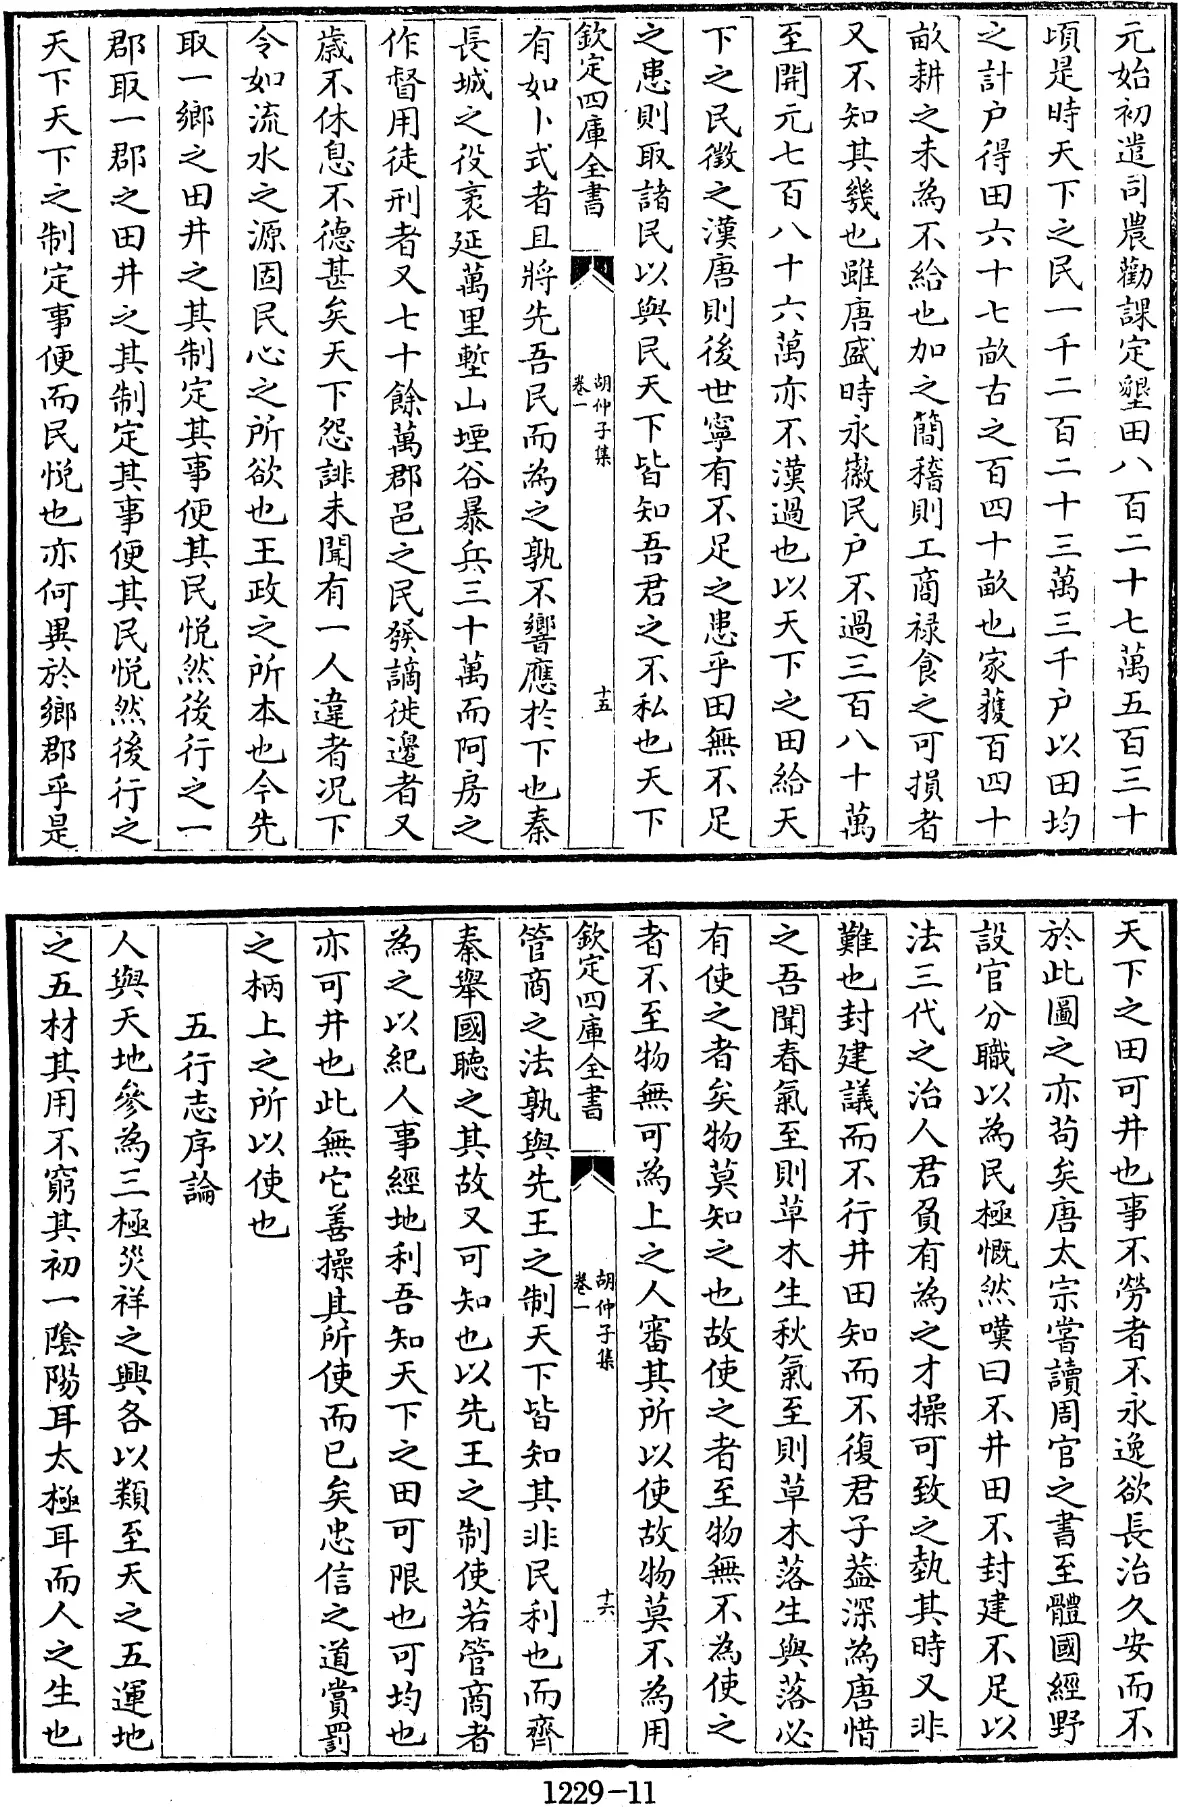 元始初遣司農勸課定墾田八百二十七萬五百三十
頃是時天下之民一千二百二十三萬三千户以田均
之計户得田六十七畝古之百四十畝也家獲百四十
畝耕之未為不給也加之簡稽則工商禄食之可損者
又不知其幾也雖唐盛時永徽民户不過三百八十萬
至開元七百八十六萬亦不漢過也以天下之田給天
下之民徵之漢唐則後世寧有不足之患乎田無不足
之患則取諸民以與民天下皆知吾君之不私也天下
欽定四庫全書
胡仲子集
卷一
十五
有如卜式者且將先吾民而為之孰不響應於下也秦
長城之役袤延萬里塹山堙谷暴兵三十萬而阿房之
作督用徒刑者又七十餘萬郡邑之民發謫徙邊者又
歲不休息不德甚矣天下怨誹未聞有一人違者况下
令如流水之源固民心之所欲也王政之所本也今先
取一鄉之田井之其制定其事便其民悦然後行之一
郡取一郡之田井之其制定其事便其民悦然後行之
天下天下之制定事便而民悦也亦何異於鄉郡乎是
天下之田可井也事不勞者不永逸欲長治久安而不
於此圖之亦苟矣唐太宗嘗讀周官之書至體國經野
設官分職以為民極慨然嘆曰不井田不封建不足以
法三代之治人君負有為之才操可致之埶其時又非
難也封建議而不行井田知而不復君子葢深為唐惜
之吾聞春氣至則草木生秋氣至則草木落生與落必
有使之者矣物莫知之也故使之者至物無不為使之
者不至物無可為上之人審其所以使故物莫不為用
欽定四庫全書
胡仲子集
卷一
十六
管商之法孰與先王之制天下皆知其非民利也而齊
秦舉國聽之其故又可知也以先王之制使若管商者
為之以紀人事經地利吾知天下之田可限也可均也
亦可井也此無它善操其所使而已矣忠信之道賞罰
之柄上之所以使也
五行志序論
人與天地參為三極災祥之興各以類至天之五運地
之五材其用不窮其初一陰陽耳太極耳而人之生也
1229-11